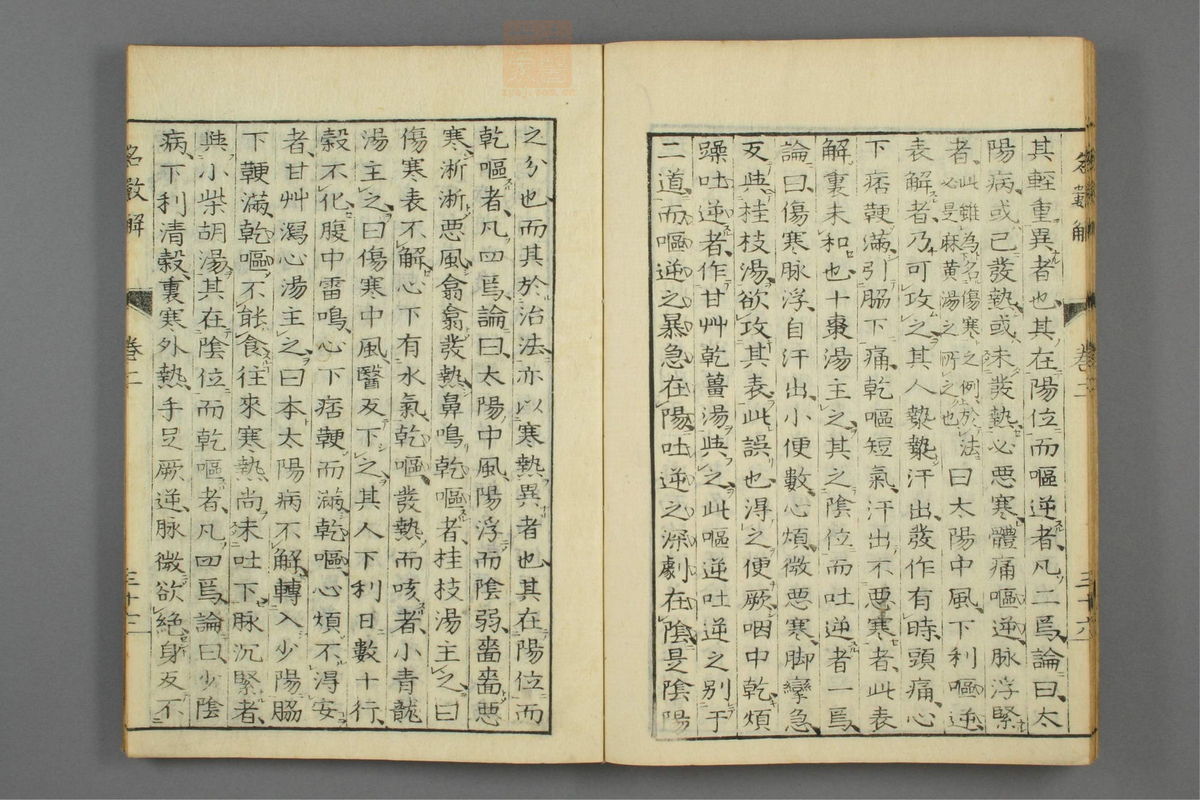 其輕重異者也其在陽位而嘔逆者凡二焉論曰太
陽病或已發熱或未發熱必惡寒體痛嘔逆脉浮緊
者此雖為名傷寒之例於法必是麻黃湯之所之也曰太陽中風下利嘔逆
表解者乃可攻之其人漐漐汗出發作有時頭痛心
下痞鞕滿引脇下痛乾嘔短氣汗出不惡寒者此表
解裏未和也十棗湯主之其之陰位而吐逆者一焉
論曰傷寒脉浮自汗出小便數心煩微惡寒脚攣急
反與桂枝湯欲攻其表此誤也得之便厥咽中乾煩
躁吐逆者作甘艸乾薑湯與之此嘔逆吐逆之別于
二道而嘔逆之暴急在陽吐逆之深劇在陰是陰陽
之分也而其於治法亦以寒熱異者也其在陽位而
乾嘔者凡四焉論曰太陽中風陽浮而陰弱嗇嗇惡
寒淅淅惡風翕翕發熱鼻鳴乾嘔者桂枝湯主之曰
傷寒表不解心下有水氣乾嘔發熱而咳者小青龍
湯主之曰傷寒中風醫反下之其人下利日數十行
穀不化腹中雷鳴心下痞鞕而滿乾嘔心煩不得安
者甘艸瀉心湯主之曰本太陽病不解轉入少陽脇
下鞕滿乾嘔不能食往來寒熱尚未吐下脉沉緊者
與小柴胡湯其在陰位而乾嘔者凡四焉論曰少陰
病下利清穀裏寒外熱手足厥逆脉微欲絕身反不
名數解
卷二